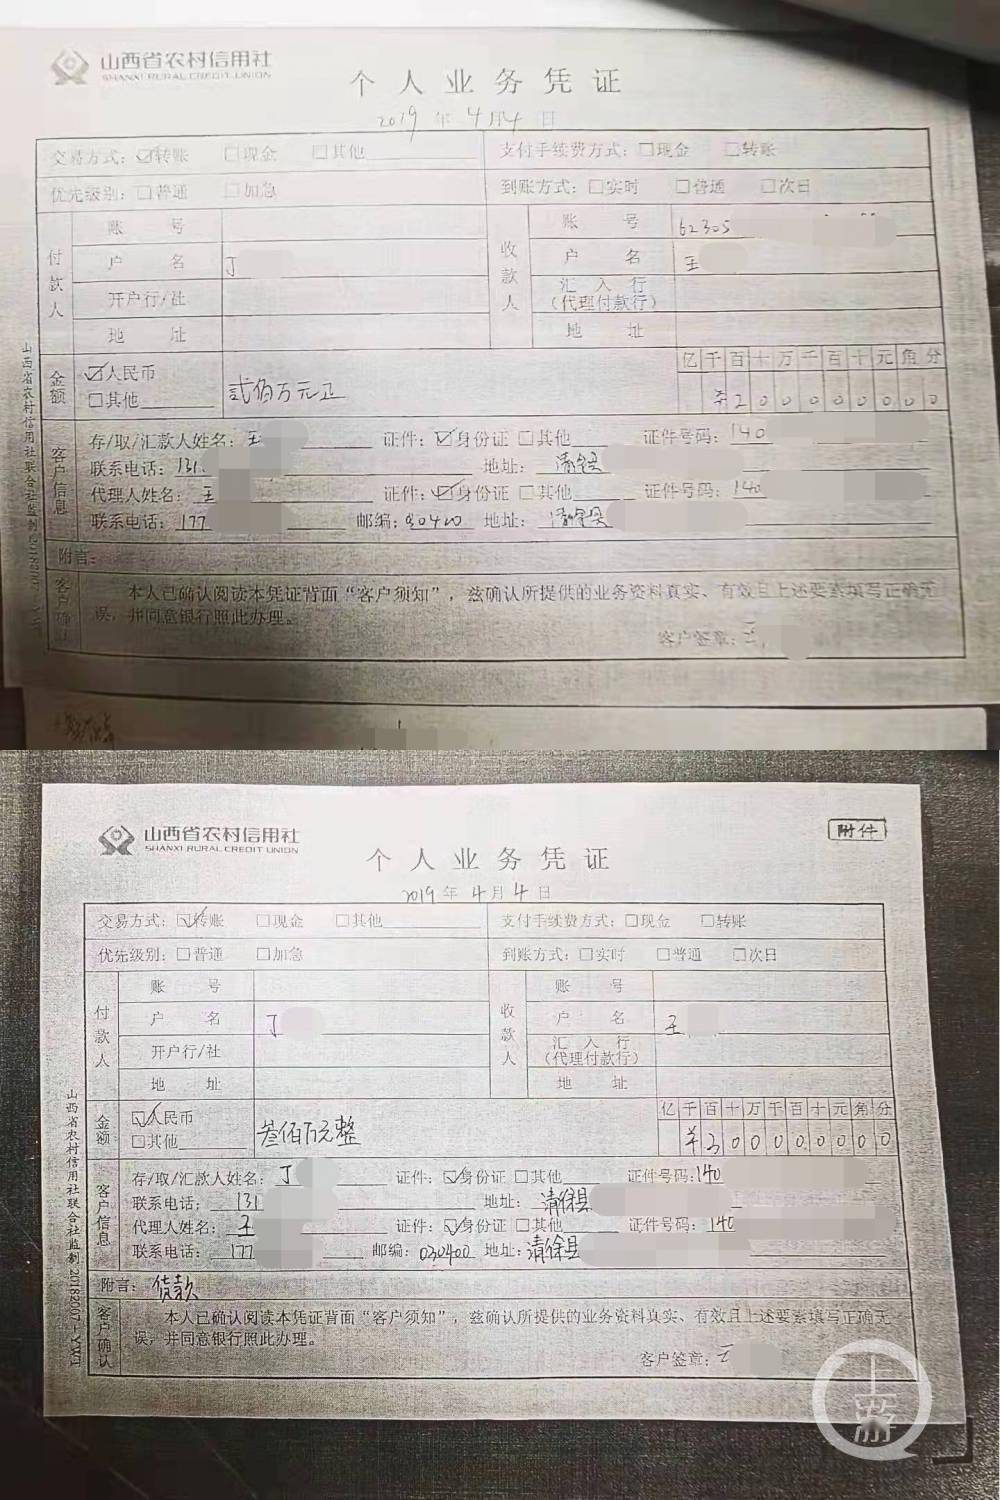 山西省农村信用社
SHANXI RURAL CREDIT UNION
个人业务凭证
2019年4月4日
交易方式：☑转账 □现金 □其他 支付手续费方式：□现金 □转账
优先级别：□普通 □加急 到账方式：□实时 □普通 □次日
付款人 收款人
账号 账号 62305
户名 丁 户名 王
开户行/社 汇入行（代理付款行）
地址 地址
金额 ☑人民币 □其他 贰佰万元正 亿千百十万千百十元角分
¥200000000
客户信息
存/取/汇款人姓名：王 证件：☑身份证 □其他 证件号码：140
联系电话：131 地址：清徐县
代理人姓名：王 证件：☑身份证 □其他 证件号码：140
联系电话：177 邮编：030400 地址：清徐县
附言：
客户确认
本人已确认阅读本凭证背面“客户须知”，兹确认所提供的业务资料真实、有效且上述要素填写正确无
误，并同意银行照此办理。
客户签章：王
山西省农村信用社联合社监制
山西省农村信用社
SHANXI RURAL CREDIT UNION
附件
个人业务凭证
2019年4月4日
交易方式：☑转账 □现金 □其他 支付手续费方式：□现金 □转账
优先级别：□普通 □加急 到账方式：□实时 □普通 □次日
付款人 收款人
账号 账号
户名 丁 户名 王
开户行/社 汇入行（代理付款行）
地址 地址
金额 ☑人民币 □其他 叁佰万元整 亿千百十万千百十元角分
¥300000000
客户信息
存/取/汇款人姓名：丁 证件：☑身份证 □其他 证件号码：140
联系电话：131 地址：清徐县
代理人姓名：王 证件：☑身份证 □其他 证件号码：140
联系电话：177 邮编：030400 地址：清徐县
附言：货款
客户确认
本人已确认阅读本凭证背面“客户须知”，兹确认所提供的业务资料真实、有效且上述要素填写正确无
误，并同意银行照此办理。
客户签章：王
山西省农村信用社联合社监制
上游